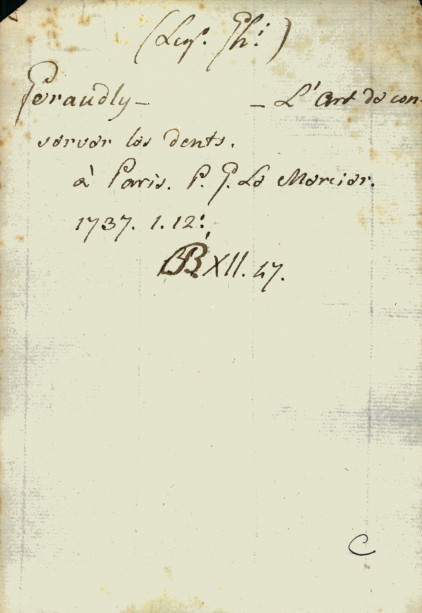 Geraudly — — L'Art de con-
server les dents.
à Paris. P. G. Le Mercier.
1737. 1. 12:
XII. 47.
C